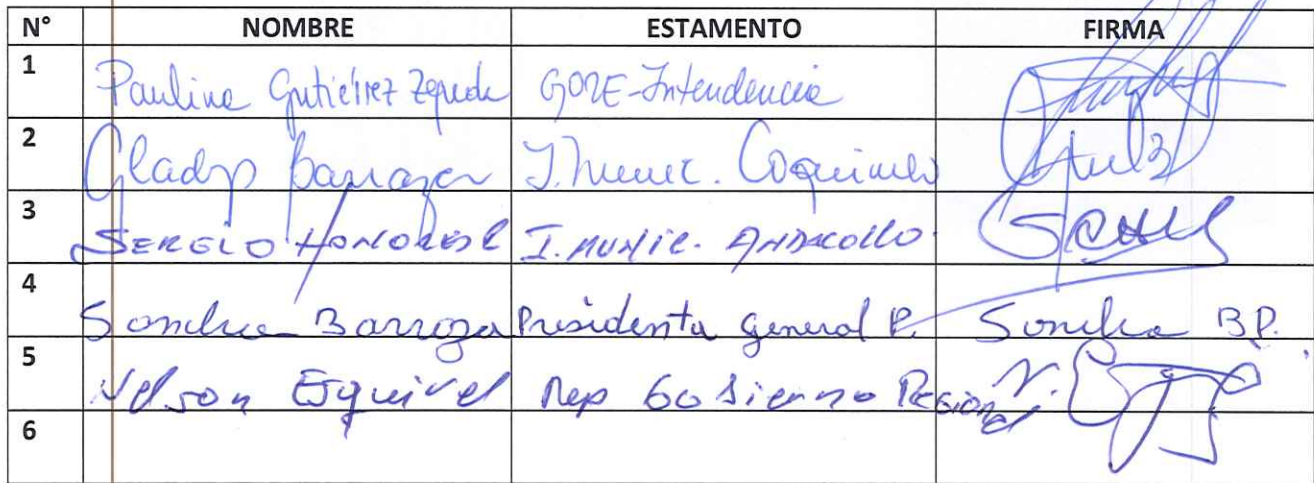 N° NOMBRE ESTAMENTO FIRMA
1 Paulina Gutiérrez Zepeda GORE-Intendencia
2 Gladys Barraza I. Munic. Coquimbo
3 SERGIO HONORES I. MUNIC. ANDACOLLO.
4 Sondra Barroza Presidenta General P. Sondra BP.
5 Nelson Esquivel Rep Gobierno Regional
6